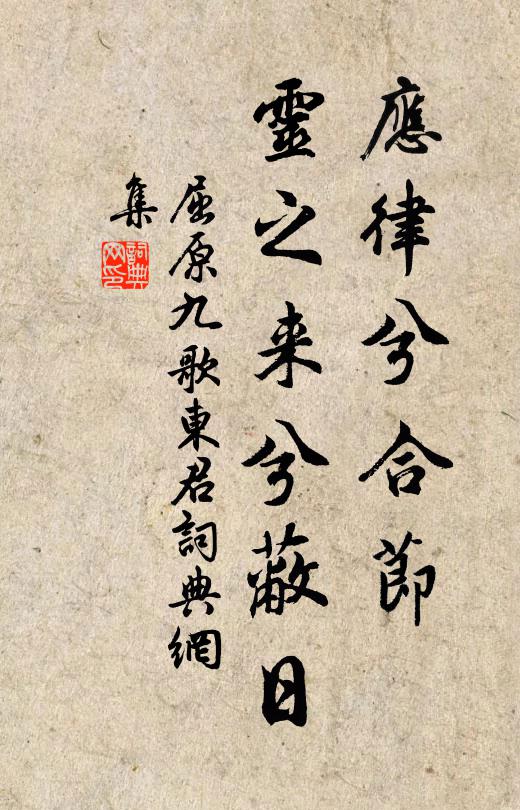 應律兮合節
靈之来兮蔽日
屈原九歌東君詞典網
集
詞典
网印